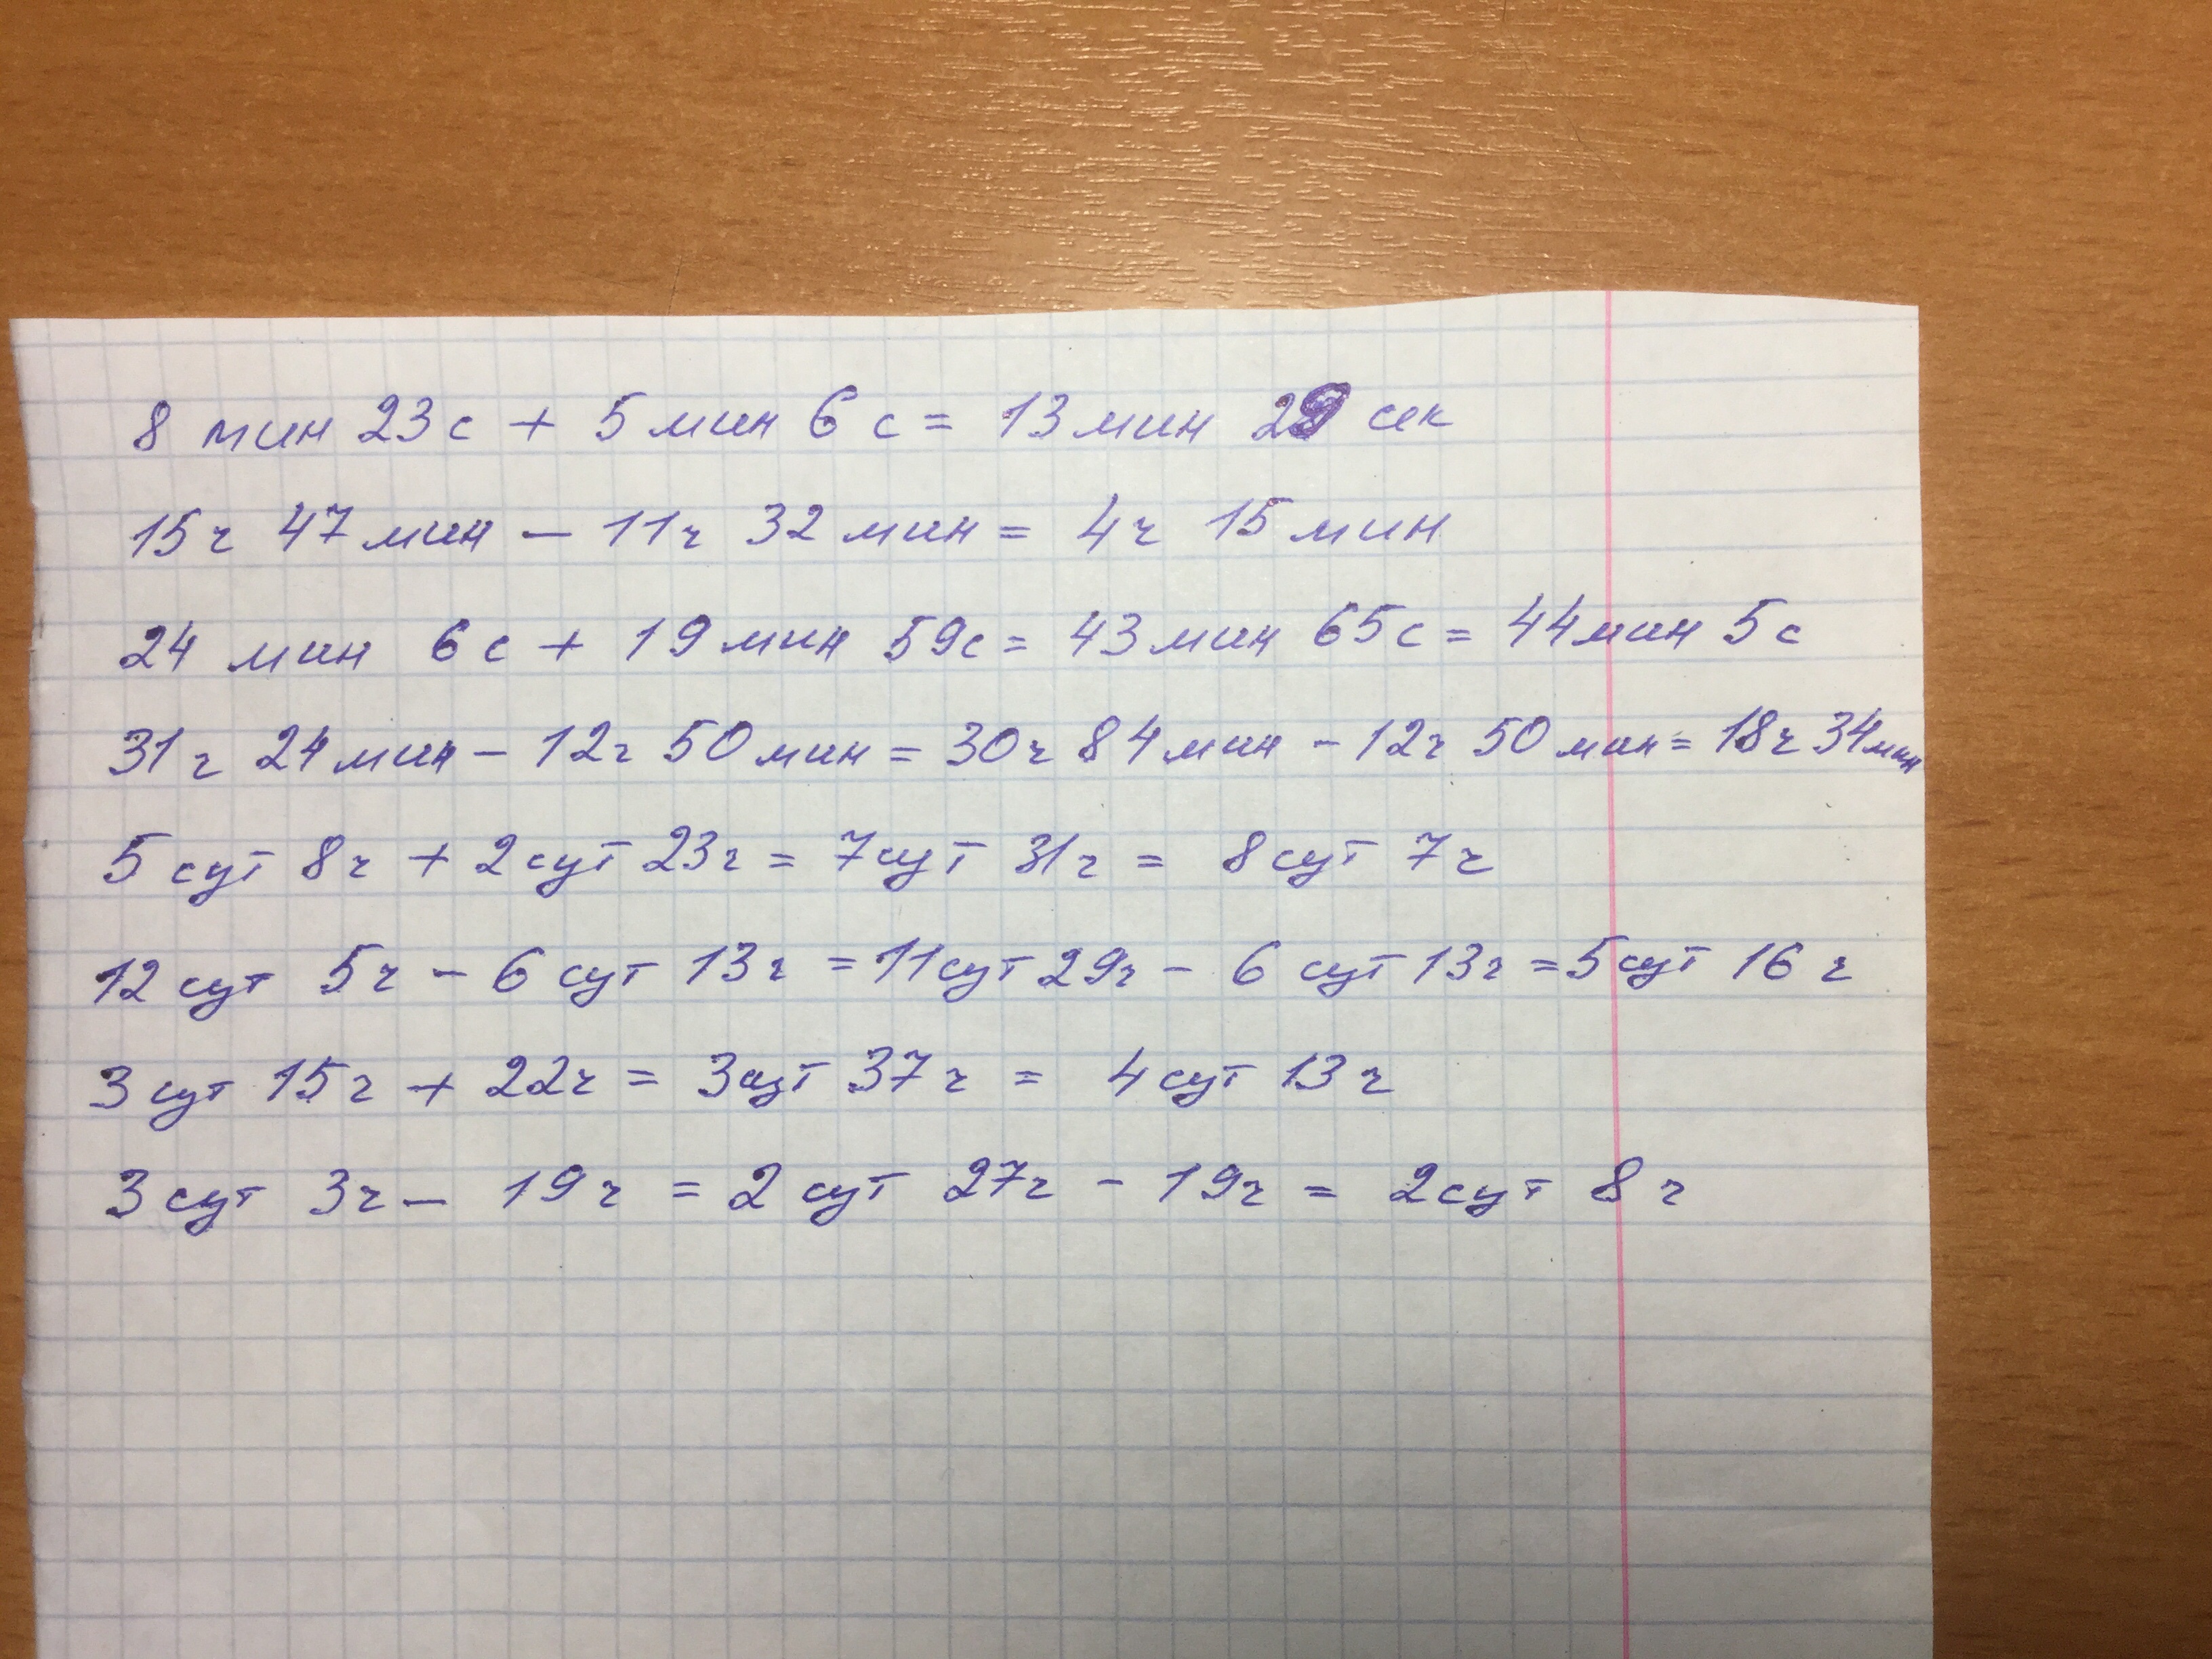 8 мин 23 с + 5 мин 6 с = 13 мин 29 сек
15 ч 47 мин - 11 ч 32 мин = 4 ч 15 мин
24 мин 6 с + 19 мин 59 с = 43 мин 65 с = 44 мин 5 с
31 ч 24 мин - 12 ч 50 мин = 30 ч 84 мин - 12 ч 50 мин = 18 ч 34 мин
5 сут 8 ч + 2 сут 23 ч = 7 сут 31 ч = 8 сут 7 ч
12 сут 5 ч - 6 сут 13 ч = 11 сут 29 ч - 6 сут 13 ч = 5 сут 16 ч
3 сут 15 ч + 22 ч = 3 сут 37 ч = 4 сут 13 ч
3 сут 3 ч - 19 ч = 2 сут 27 ч - 19 ч = 2 сут 8 ч